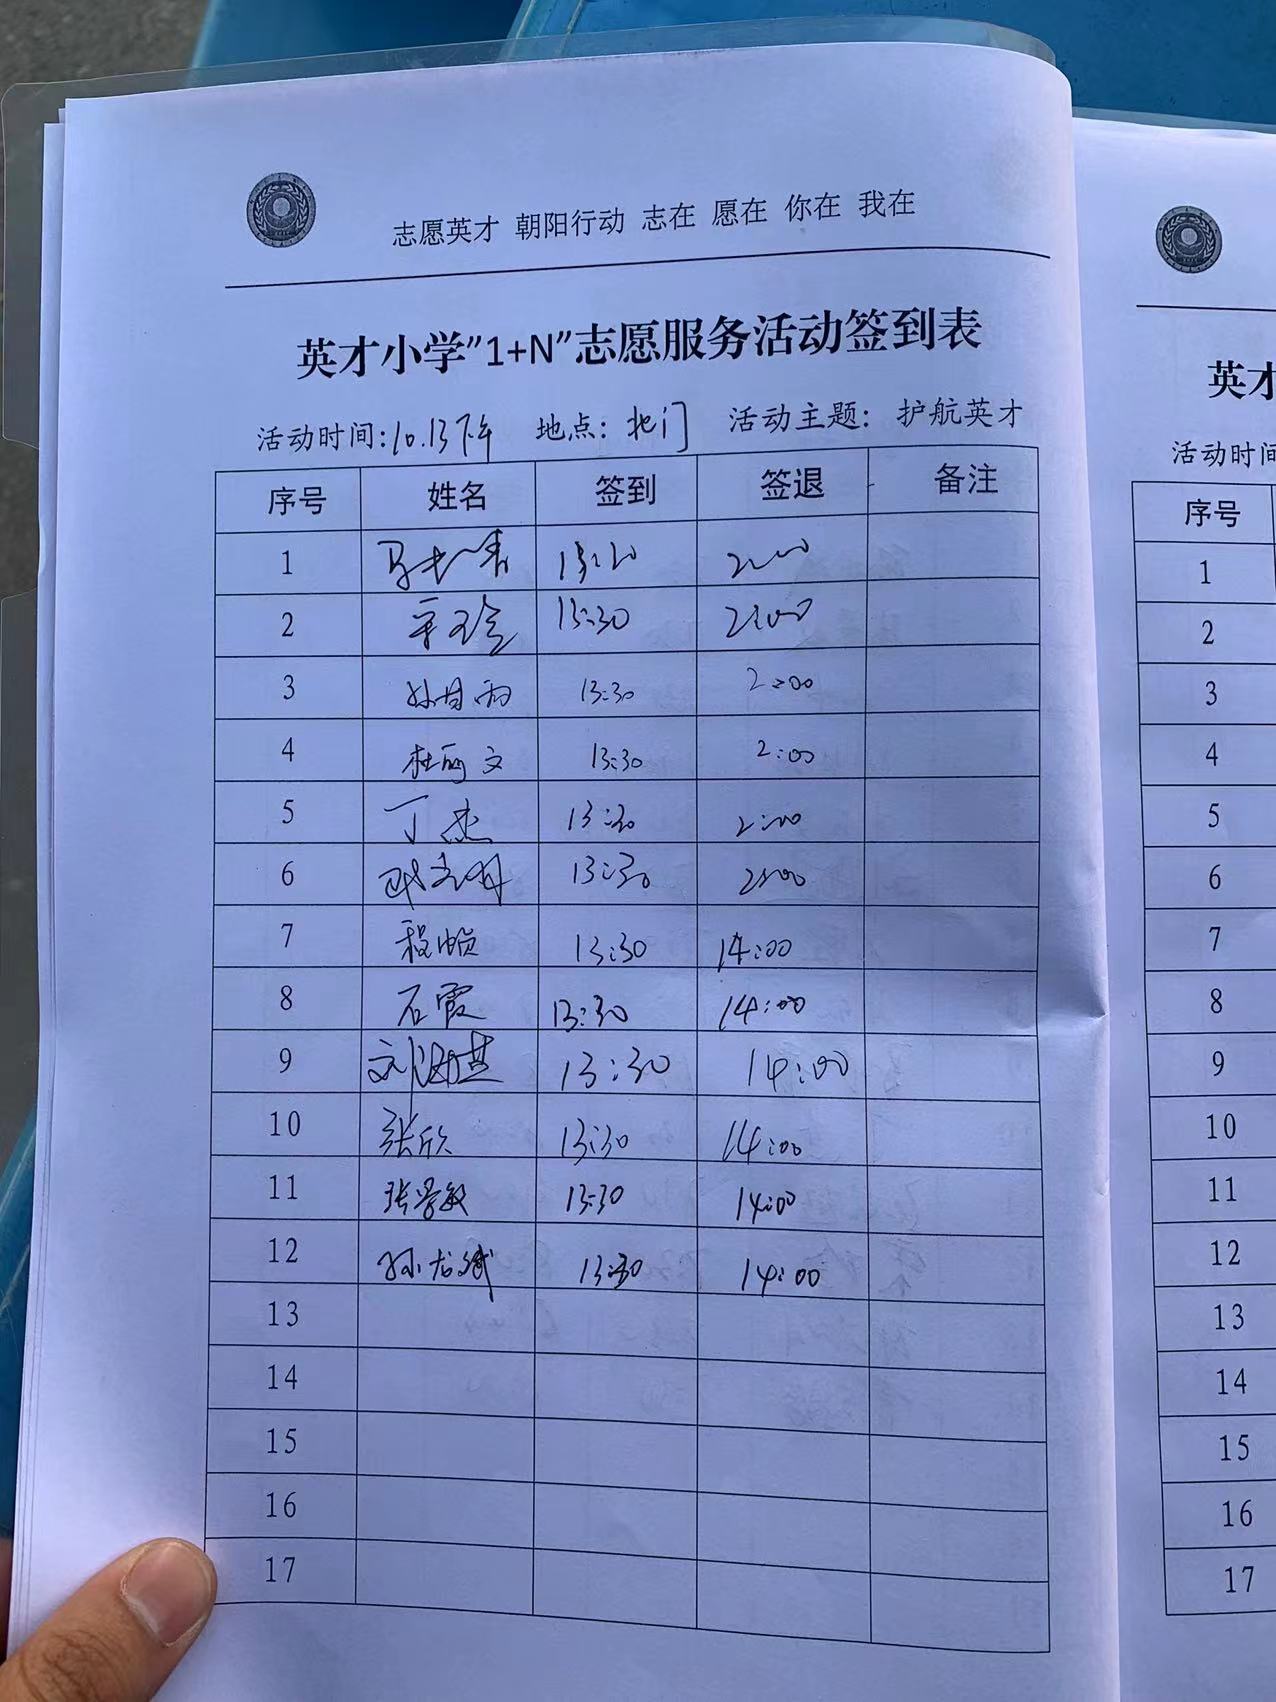 志愿英才 朝阳行动 志在 愿在 你在 我在
英才小学”1+N”志愿服务活动签到表
活动时间:10.13下午 地点:北门 活动主题: 护航英才
序号 姓名 签到 签退 备注
1 13:20 2:00
2 13:30 2:00
3 13:30 2:00
4 杜丽文 13:30 2:00
5 丁杰 13:30 2:00
6 13:30 2:00
7 程帧 13:30 14:00
8 石霞 13:30 14:00
9 刘淑燕 13:30 14:00
10 张欣 13:30 14:00
11 张学敏 13:30 14:00
12 孙龙斌 13:30 14:00
13
14
15
16
17
英才
活动时间
序号
1
2
3
4
5
6
7
8
9
10
11
12
13
14
15
16
17